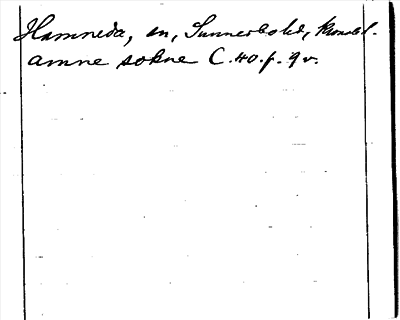 Hamneda, sn, Sunnerbohd, Kronobl.
amne sokne C.40.f.9v.